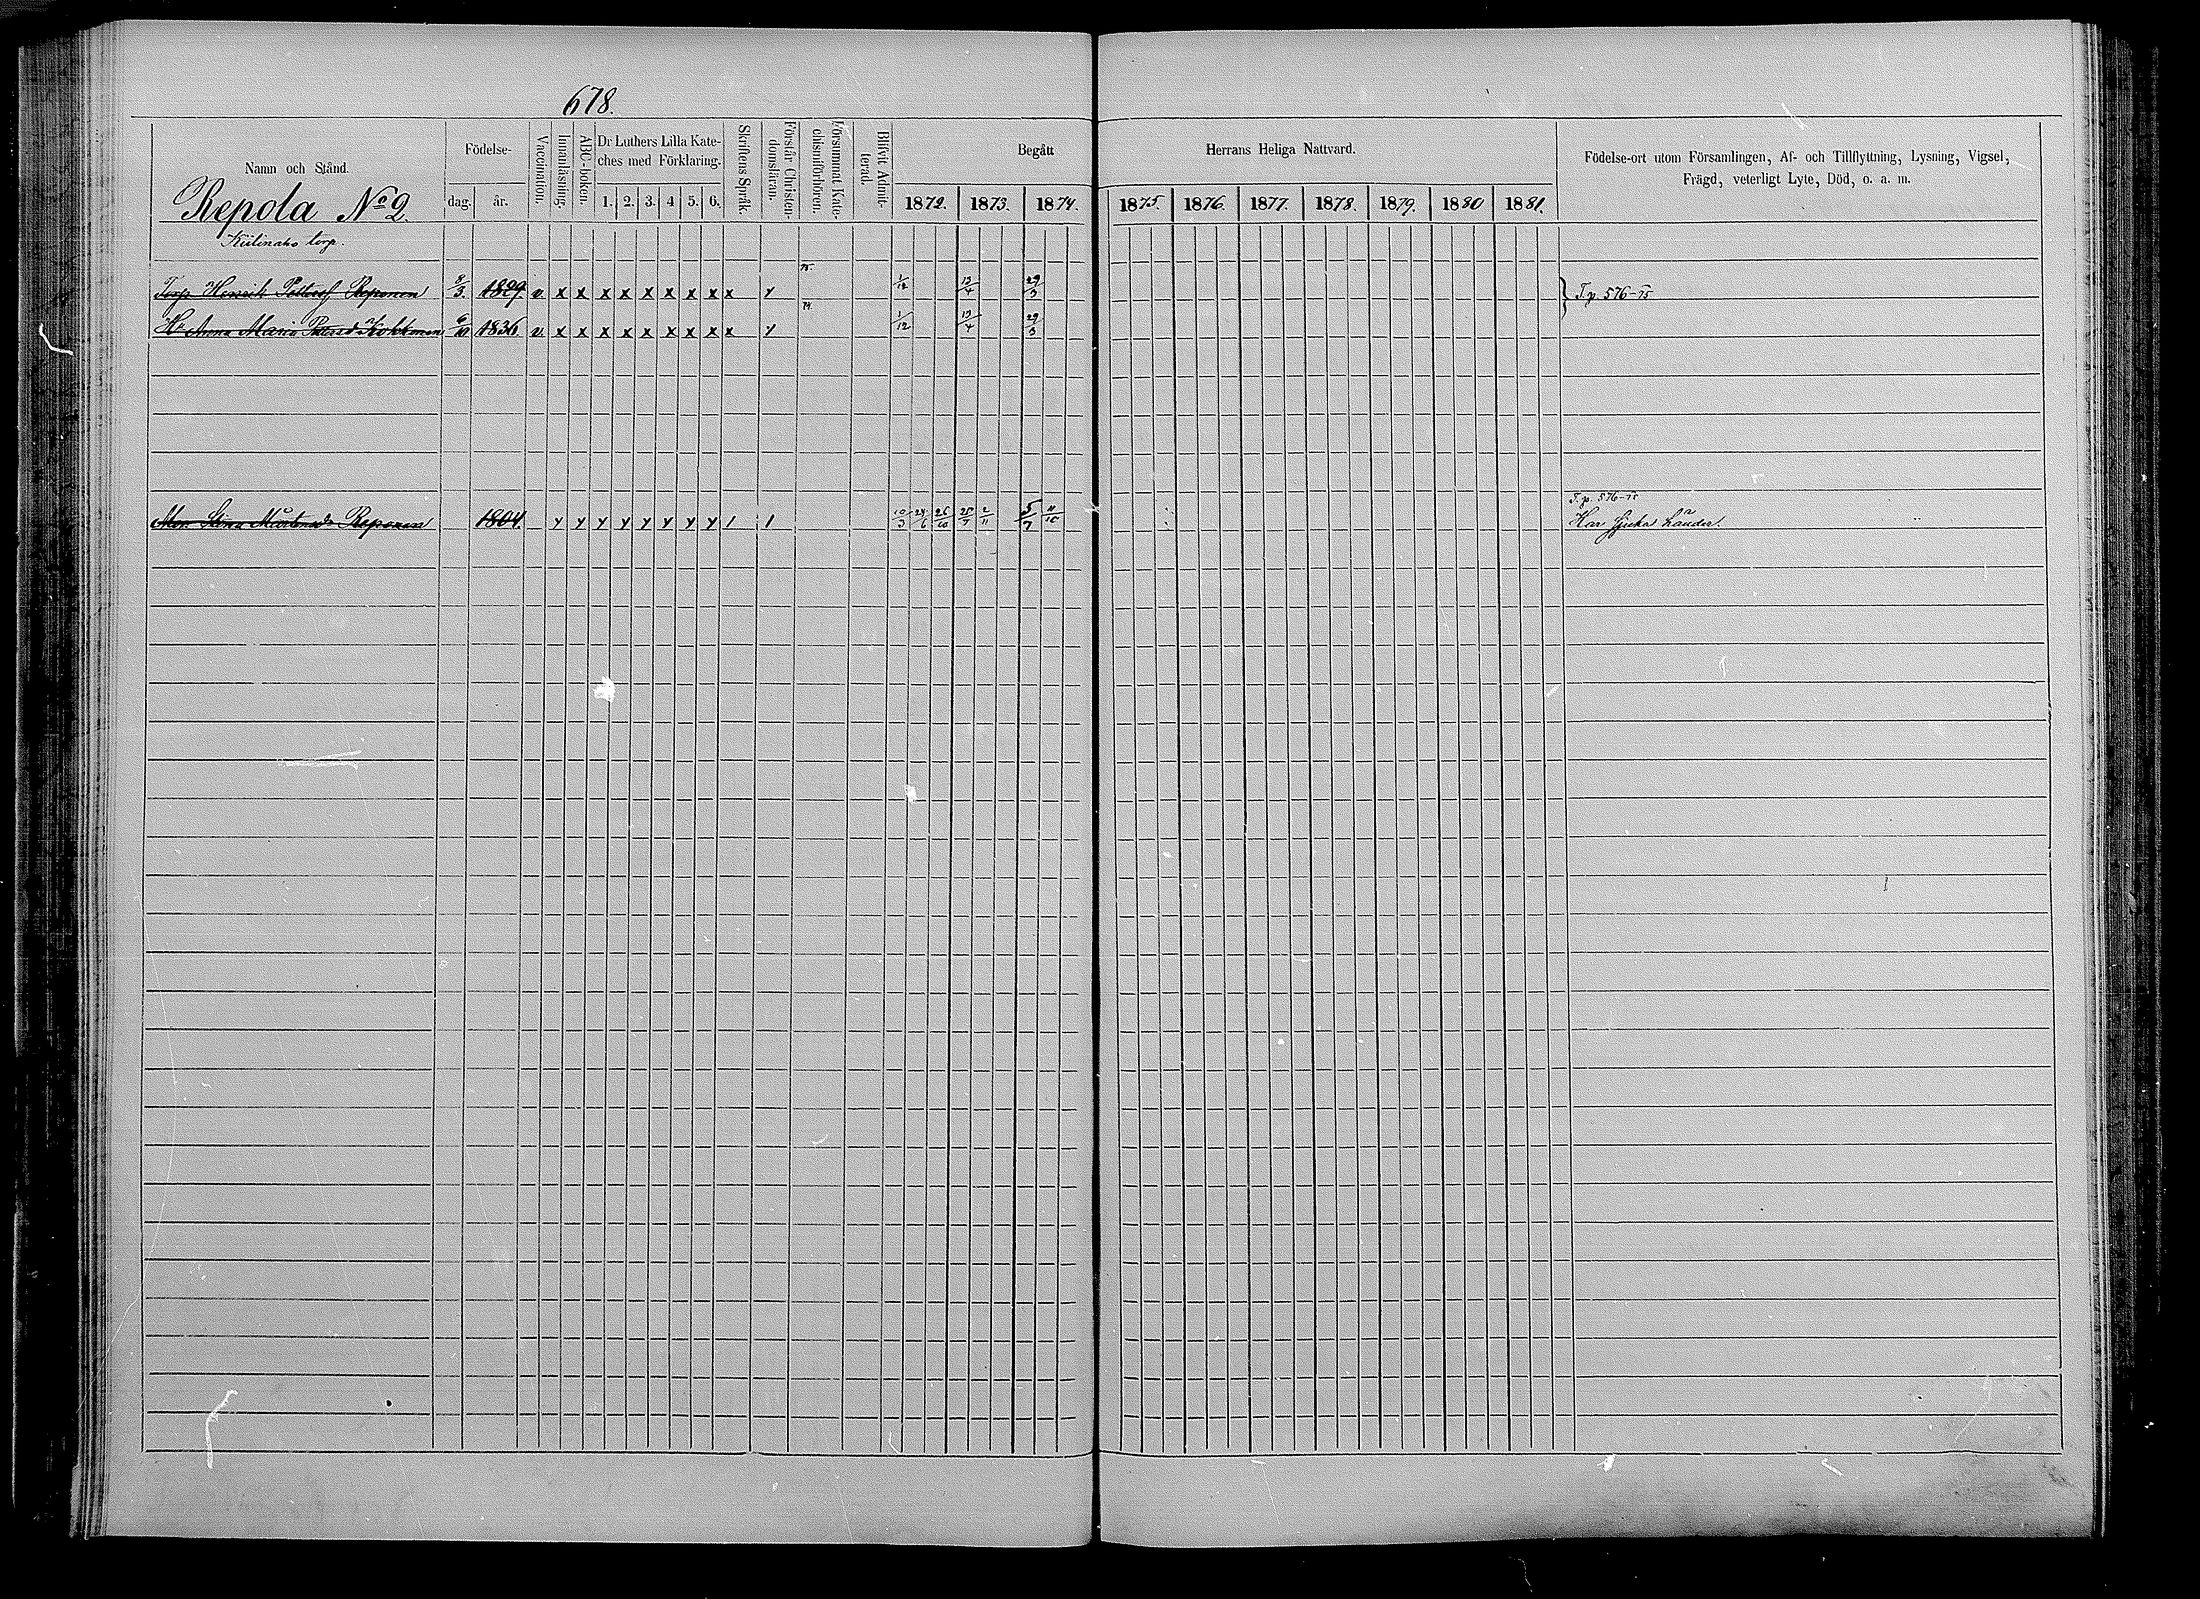 678.
Namn och Stånd.
Födelse-
dag.
år.
Vaccination.
Innanläsning.
ABC-boken.
Dr Luthers Lilla Kate-
ches med Förklaring.
1. 2. 3. 4 5. 6.
Skriftens Språk.
Förstår Christen-
domsläran.
Försummat Kate-
chismiförhören.
Blifvit Admit-
terad.
Begått Herrans Heliga Nattvard.
1872. 1873. 1874. 1875. 1876. 1877. 1878. 1879. 1880 1881.
Födelse-ort utom Församlingen, Af- och Tillflyttning, Lysning, Vigsel,
Frägd, veterligt Lyte, Död, o. a. m.
Repola No 2.
torp.
75.
Torp. Henrik Reponen 8/3. 1829. v. x x x x x x x x x y 1/12 13/4 29/3 T.p. 576-75
74.
Anna Maria Kokkonen 1836 v. x x x x x x x x x y 1/12 13/4 29/3
T.p. 576-75
Stina Mårtensd. Reponen 1804. y y y y y y y y 1 1 10/3 24/6 26/10 25/7 2/11 5/7 11/10 Har sjuka händer.